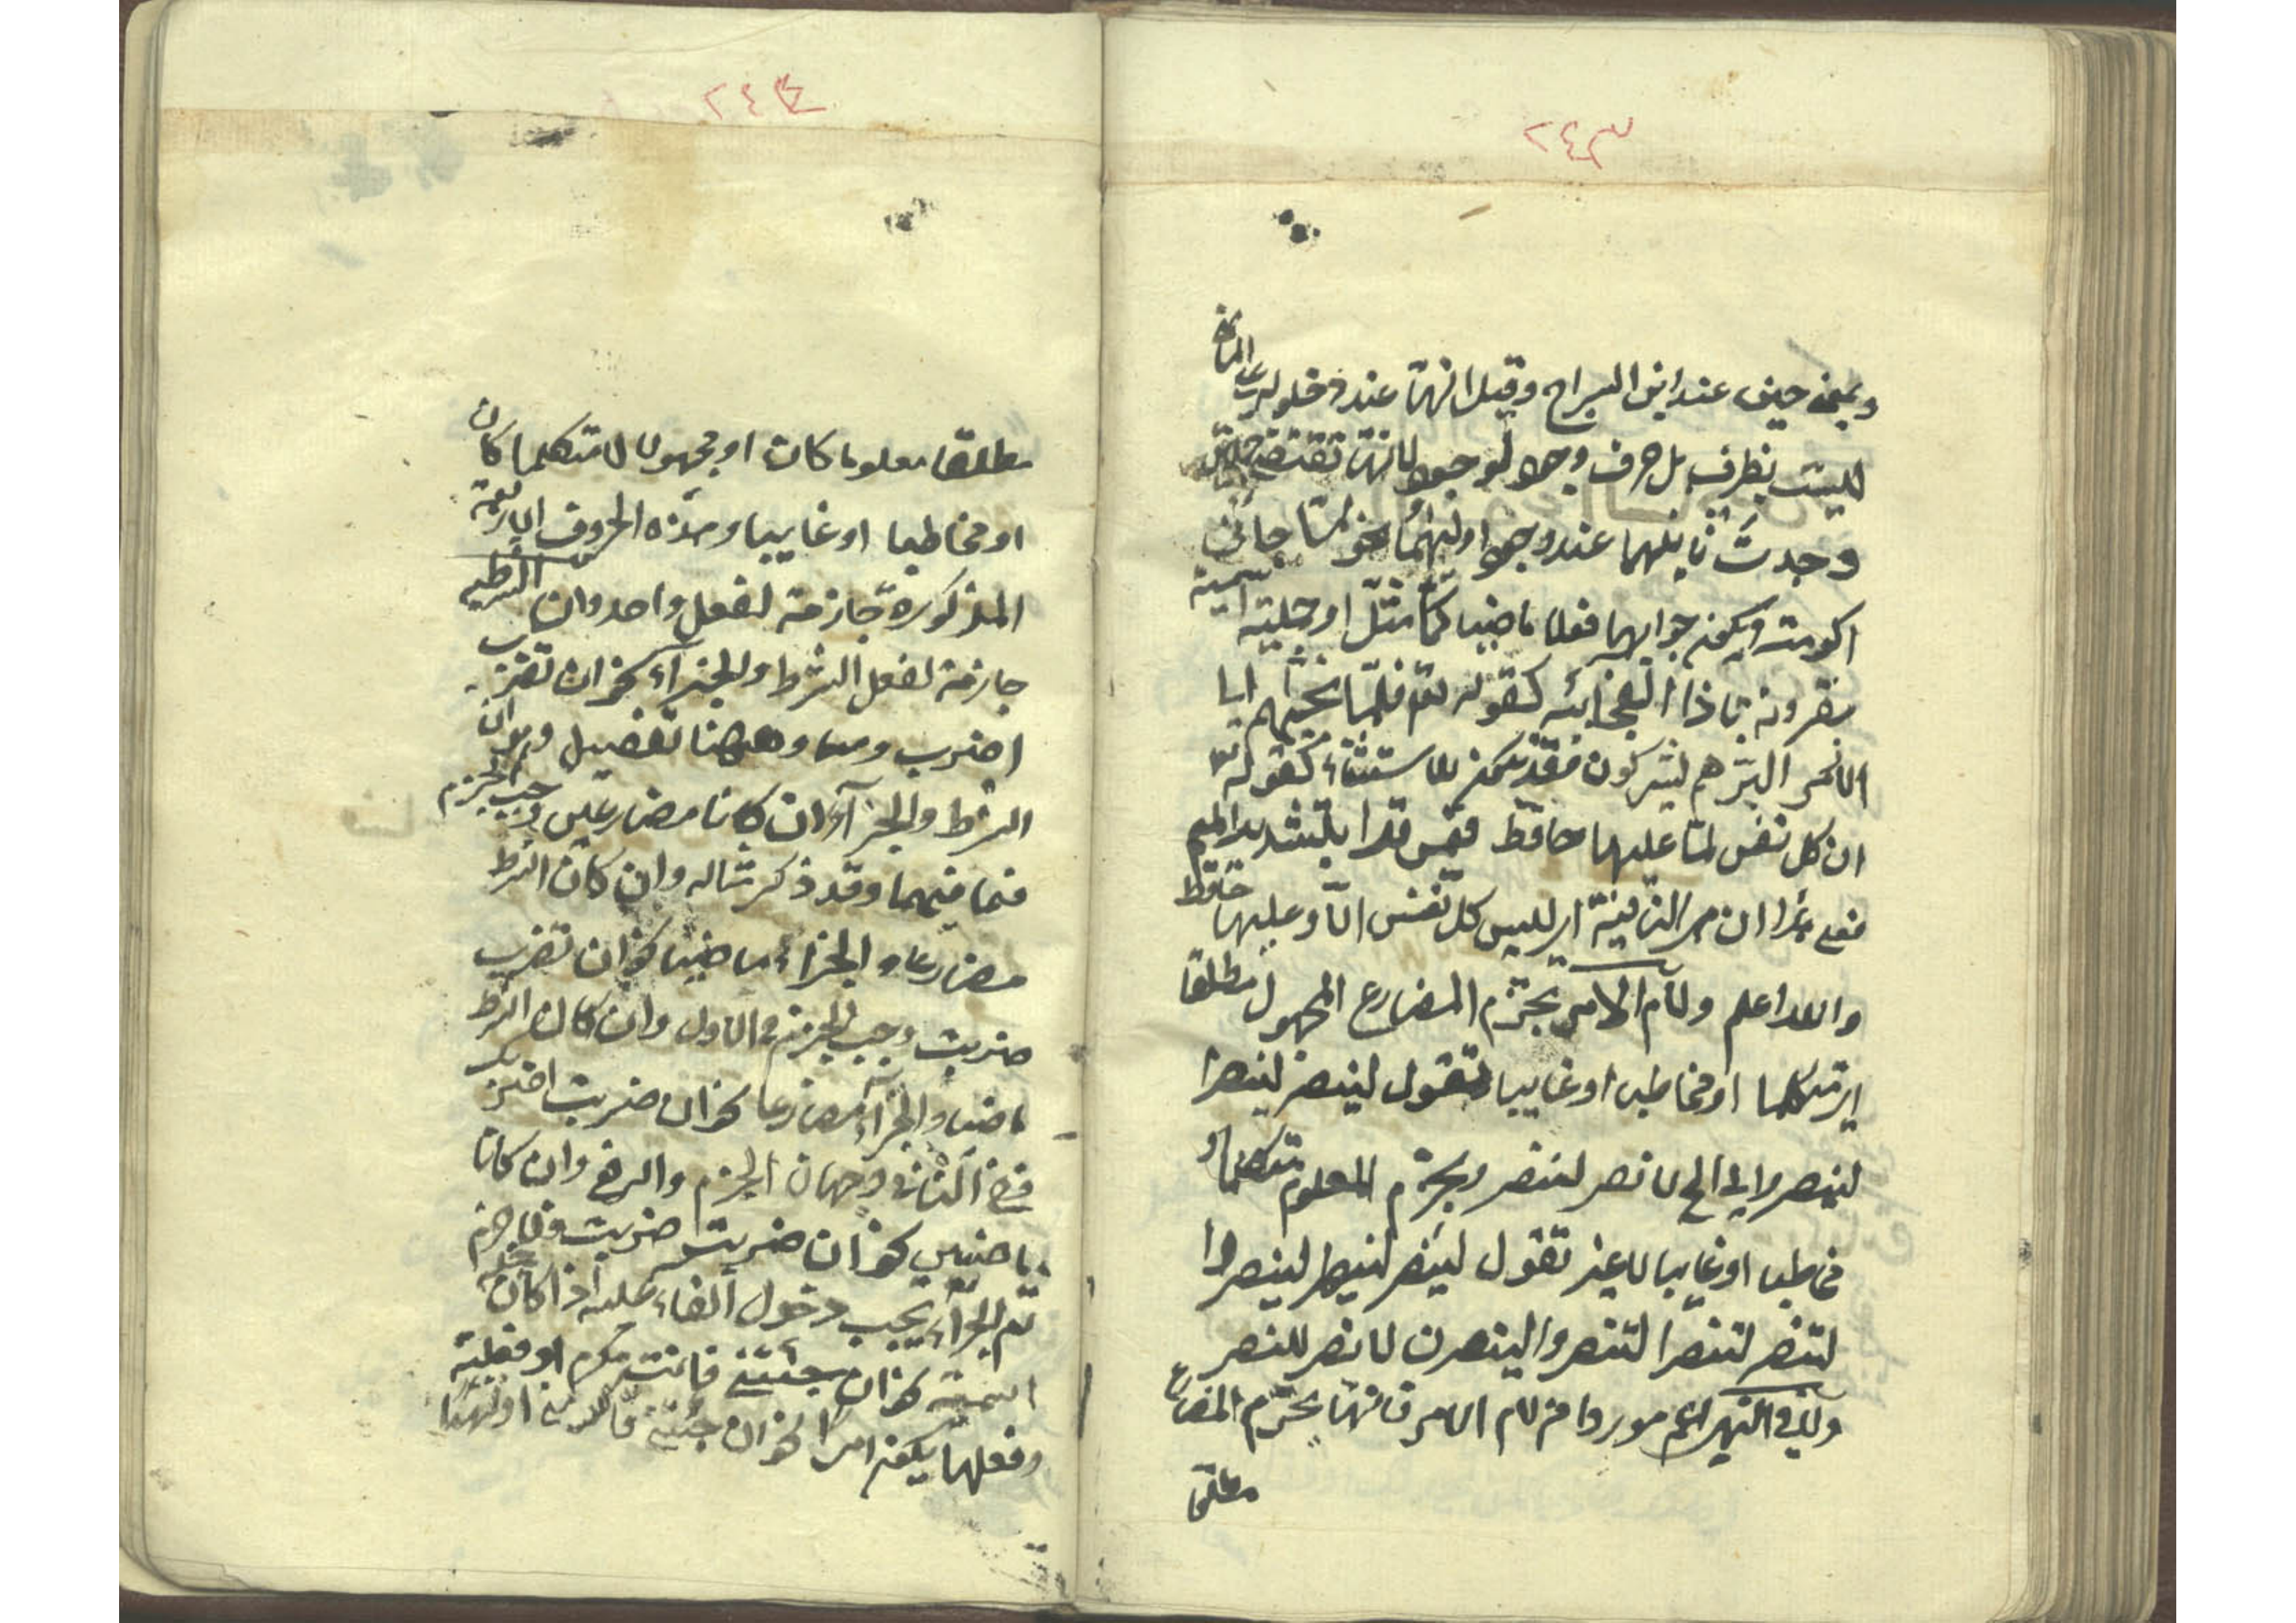 ٢٤٣
وبمعنى حين عند ابن السراج وقيل انها عند دخولها على الماضي
ليست بظرف بل حرف وجود لوجود لانها تقتضي جملتين
وجدت ثانيتهما عند وجود اوليهما نحو لما جائني
اكرمته ويكون جوابهما فعلا ماضيا كما مثل او جملة اسمية
مقرونة باذا الفجائية كقوله تعم فلما نجيهم
البر اذا هم يشركون وقد يكون للاستثناء كقوله تع
ان كل نفس لما عليها حافظ فيمن قرا بتشديد الميم
فعلى هذا ان هي النافية اي ليس كل نفس الا وعليها حافظ
والله اعلم ولام الامر تجزم المضارع المجهول مطلقا
اي متكلما او مخاطبا او غايبا تقول لينصر لينصرا
لينصروا الى الخ لانصر لننصر وتجزم المعلوم متكلما او
مخاطبا او غايبا لا غير تقول لينصر لينصرا لينصروا
لتنصر لتنصرا لتنصروا لينصرن لانصر لننصر
ولا في النهي اعم موردا من لام الامر فانها تجزم المضارع
مطلقا
٢٤٤
مطلقا معلوما كان او مجهولا متكلما كان
او مخاطبا او غايبا وهذه الحروف الاربعة
المذكورة جازمة لفعل واحد وان الشرطية
جازمة لفعل الشرط والجزاء نحو ان تضرب
اضرب وههنا تفصيل وهو ان
الشرط والجزاء ان كانا مضارعين وجب الجزم
فيهما وقد ذكر مثاله وان كان الشرط
مضارعا والجزاء ماضيا نحو ان تضرب
ضربت وجب الجزم في الاول وان كان الشرط
ماضيا والجزاء مضارعا نحو ان ضربت اضرب
ففي الثاني وجهان الجزم والرفع وان كانا
ماضيين نحو ان ضربت ضربت فلا جزم
ثم الجزاء يجب دخول الفاء عليه اذا كان جملة
اسمية نحو ان جئتني فانت مكرم او فعلية
وفعلها يكون امرا نحو ان جئتني فاكرمني او نهيا